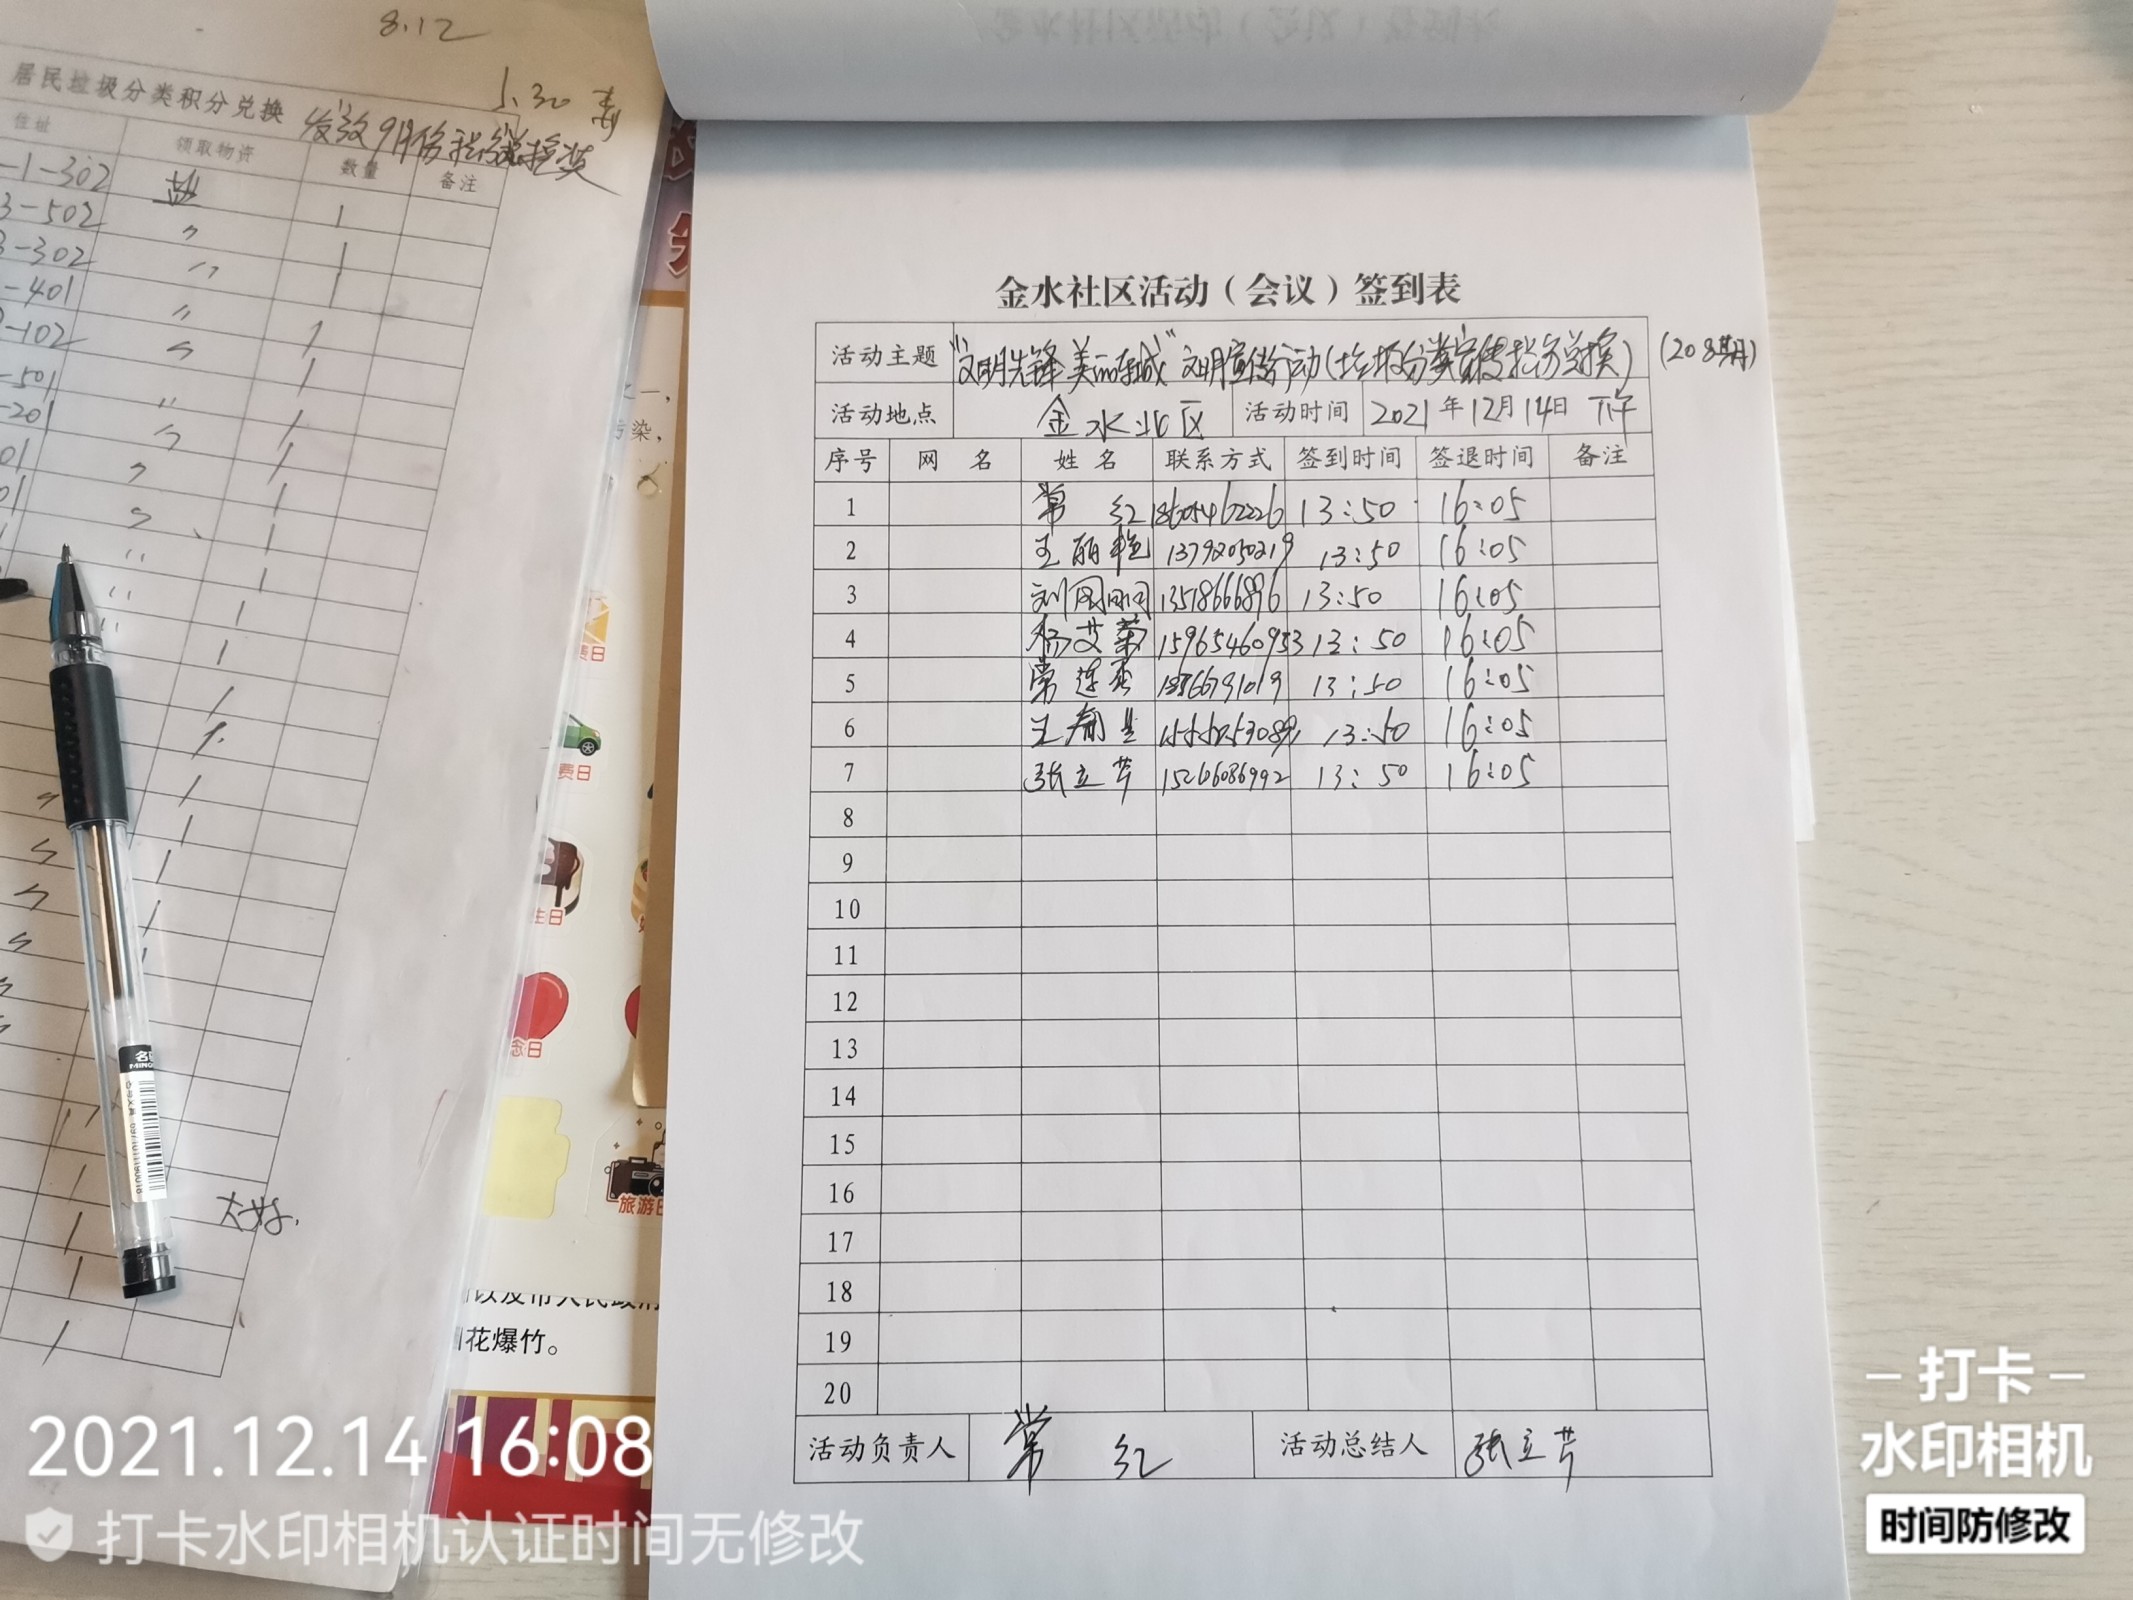 8.12
5.30
居民垃圾分类积分兑换 发放9月份积分兑换
住址 领取物资 数量 备注
-1-302 盐 1
3-502 〃 1
3-302 〃 1
-401 〃 1
-102 〃 1
-501 〃 1
-201 〃 1
污染，
金水社区活动（会议）签到表
活动主题 “文明先锋 美丽东城”文明宣传行动（垃圾分类宣传积分兑换） （208期）
活动地点 金水北区 活动时间 2021年12月14日 下午
序号 网名 姓名 联系方式 签到时间 签退时间 备注
1 常红 18605462226 13:50 16:05
2 王丽艳 13792050219 13:50 16:05
3 刘 13518666896 13:50 16:05
4 杨艾菊 15965460953 13:50 16:05
5 常连 13:50 16:05
6 王 13:50 16:05
7 张立芹 15206086992 13:50 16:05
8
9
10
11
12
13
14
15
16
17
18
19
20
活动负责人 常红 活动总结人 张立芹
费日
费日
生日
念日
旅游日
花爆竹。
2021.12.14 16:08
打卡水印相机认证时间无修改
打卡
水印相机
时间防修改